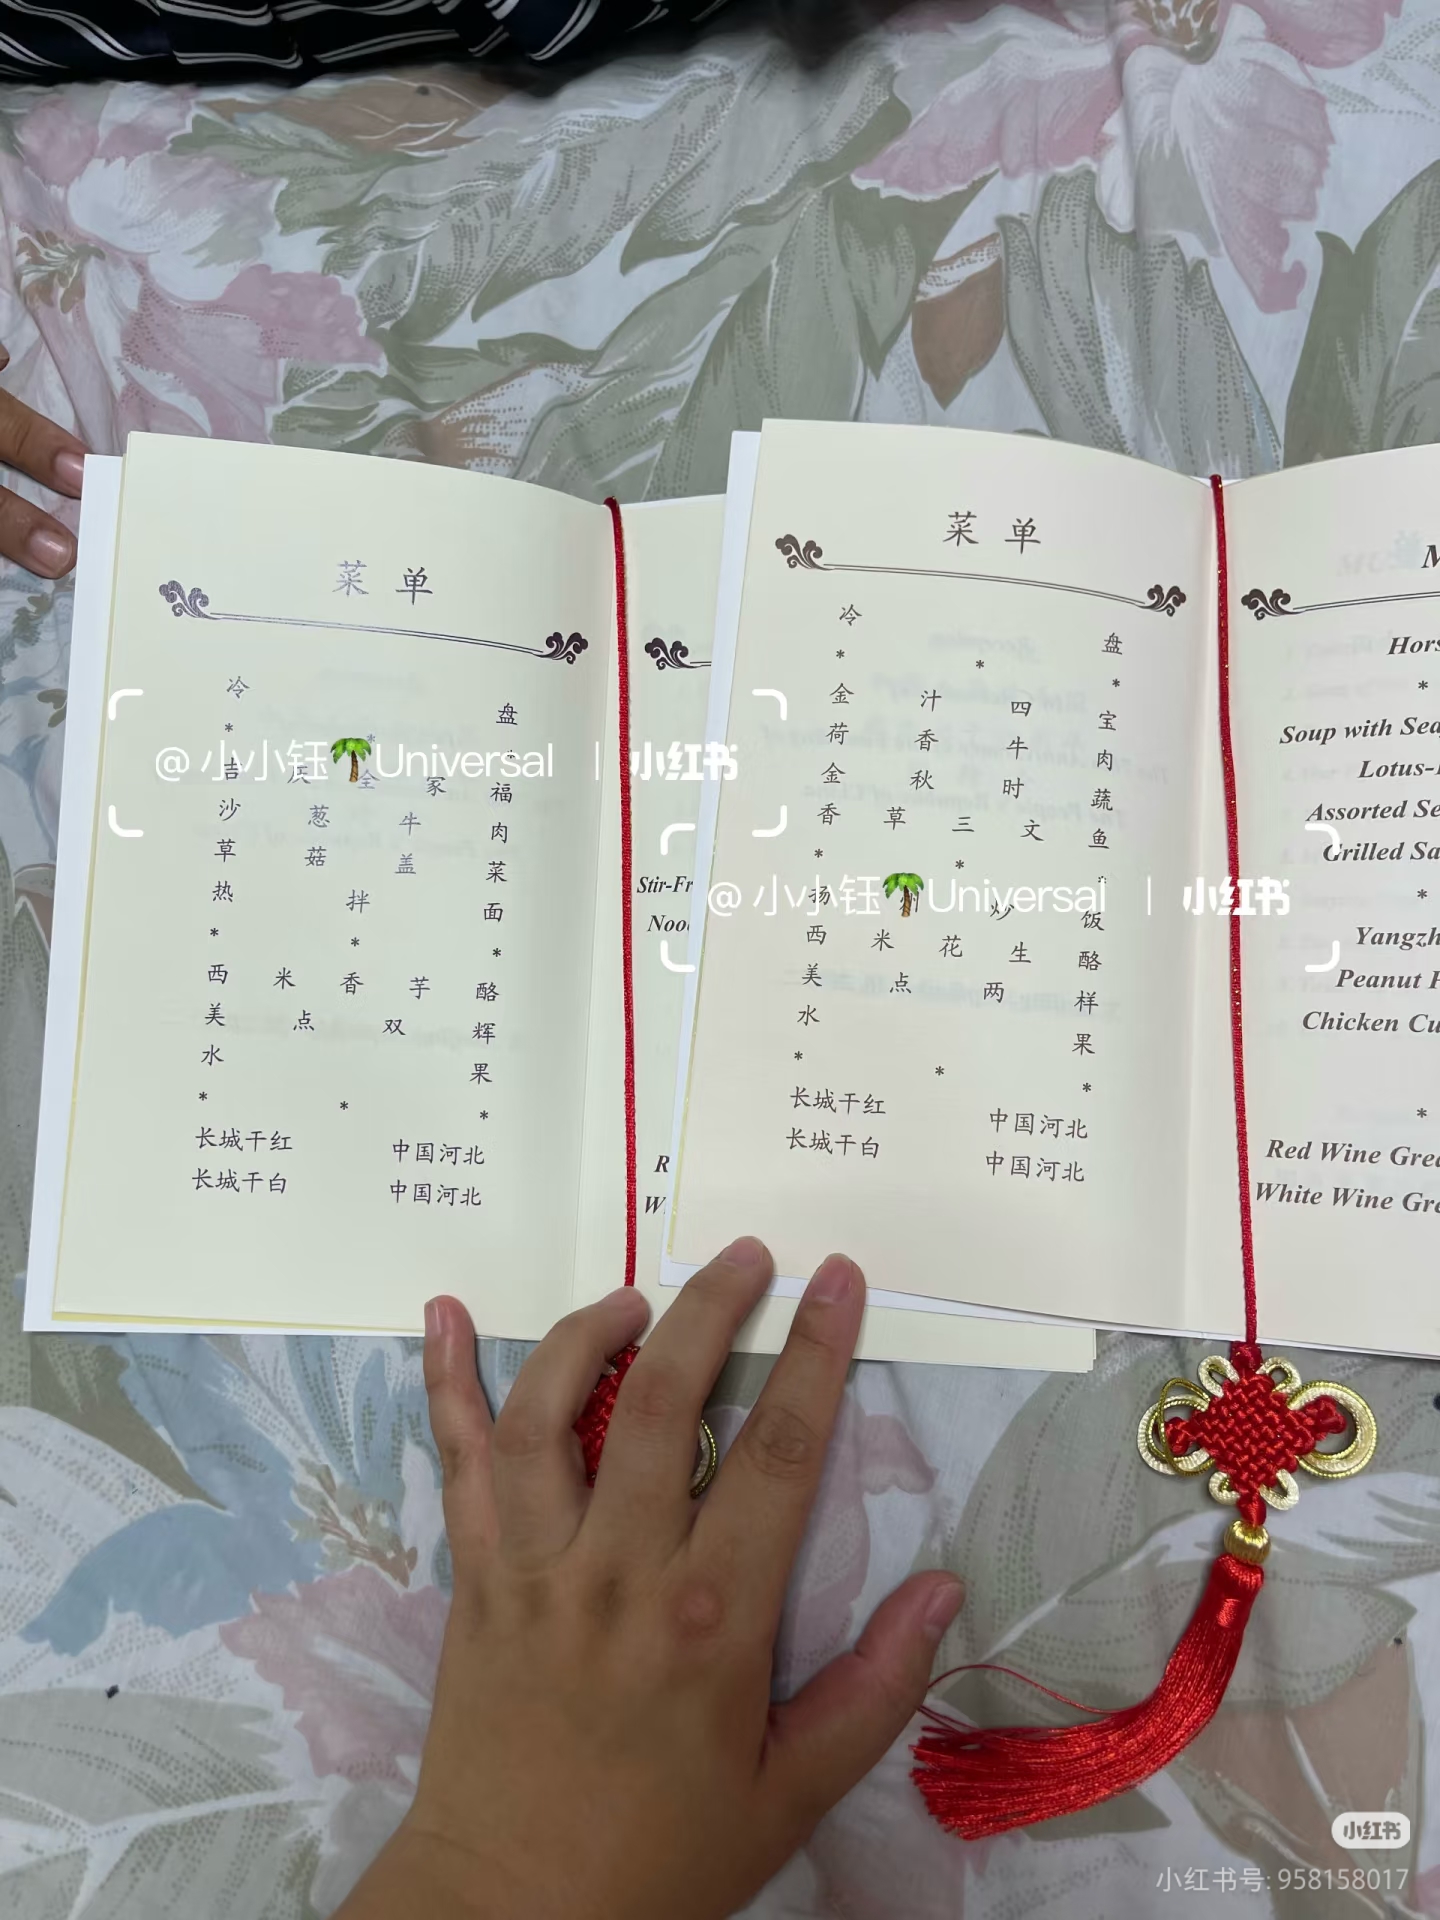 菜 单
冷 盘
* * *
吉 庆 全 家 福
沙 葱 牛 肉
草 菇 盖 菜
热 拌 面
* * *
西 米 香 芋 酪
美 点 双 辉
水 果
* * *
长城干红 中国河北
长城干白 中国河北
Stir-Fr
Nood
R
W
菜 单
冷 盘
* * *
金 汁 四 宝
荷 香 牛 肉
金 秋 时 蔬
香 草 三 文 鱼
* * *
扬 州 炒 饭
西 米 花 生 酪
美 点 两 样
水 果
* * *
长城干红 中国河北
长城干白 中国河北
M
Hors
*
Soup with Sea
Lotus-
Assorted Se
Grilled Sa
*
Yangzh
Peanut P
Chicken Cu
*
Red Wine Grea
White Wine Gre
@小小钰🌴Universal | 小红书
@小小钰🌴Universal | 小红书
小红书
小红书号: 958158017